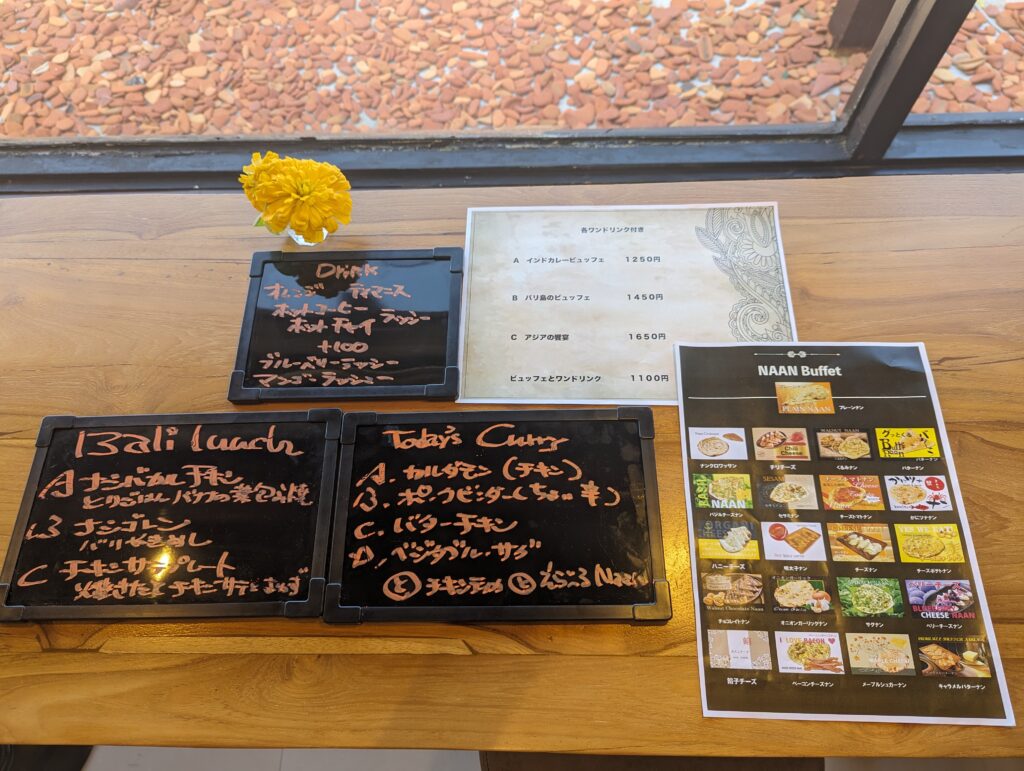 各ワンドリンク付き
A インドカレービュッフェ 1250円
B バリ島のビュッフェ 1450円
C アジアの饗宴 1650円
ビュッフェとワンドリンク 1100円
Drink
オレンジ アイマニス
ホットコーヒー ラッシー
ホットチャイ
+100
ブルーベリーラッシー
マンゴーラッシュー
Bali lunch
A ナシバカル チキン
とりごはん バナナの葉包み焼
B ナシゴレン
バリやきめし
C チキンサテプレート
Today's Curry
A. カルダモン (チキン)
B. ポークビンダー (ちょい辛)
C. バターチキン
D. ベジタブル・サグ
と チキンティカ と えらべる Naan
NAAN Buffet
PLAIN NAAN
プレーンナン
WALNUT NAAN
Chili Cheese
グッとくるバ
ナンクロワッサン
チリチーズ
くるみナン
バターナン
NAAN
SESAME
バジルチーズナン
セサミナン
チーストマトナン
かにツナナン
ハニーチーズ
明太子ナン
チーズナン
チーズポテトナン
Walnut Chocolate Naan
CHEESE NAAN
チョコレイトナン
オニオンガーリックナン
サグナン
ベリーチーズナン
I LOVE BACON
餡子チーズ
ベーコンチーズナン
メープルシュガーナン
キャラメルバターナン